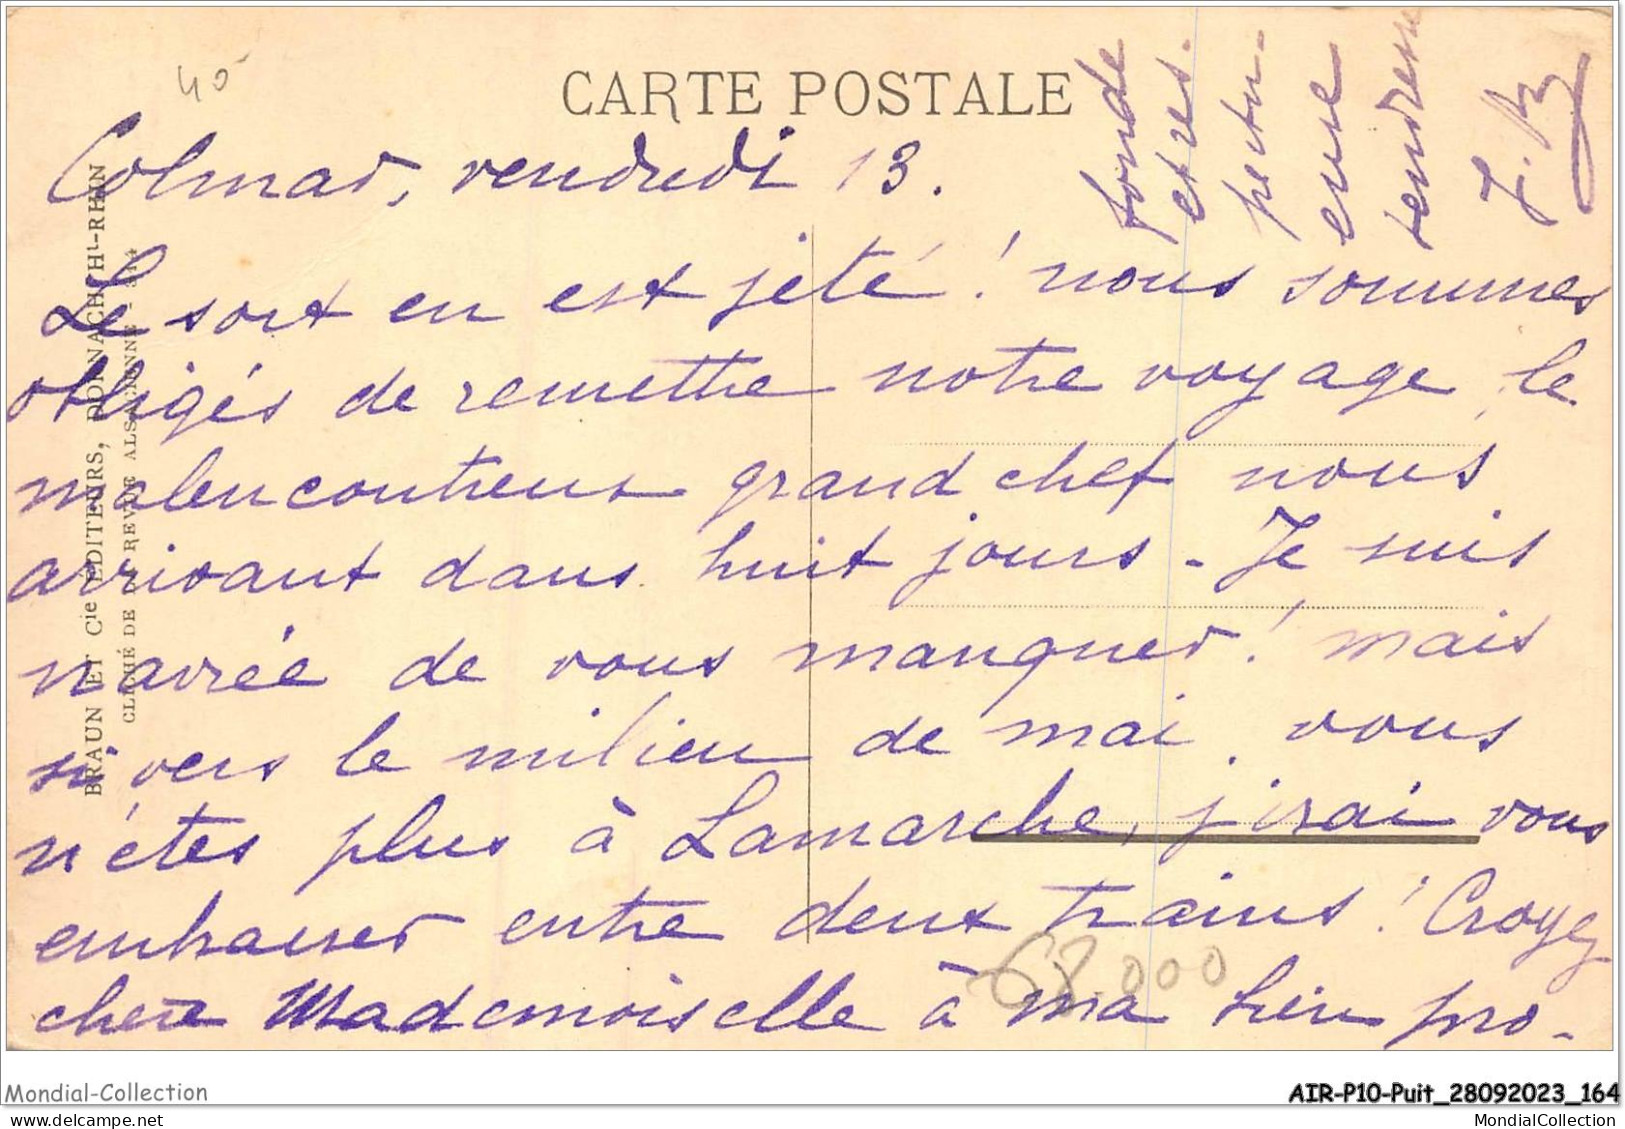 40
CARTE POSTALE
Colmar, vendredi 13.
Le sort en est jeté! nous sommes
obligés de remettre notre voyage, le
malencontreux grand chef nous
arrivant dans huit jours - Je suis
navrée de vous manquer! mais
si vers le milieu de mai, vous
n'êtes plus à Lamarche, j'irai vous
embrasser entre deux trains! Croyez
chère Mademoiselle à ma bien pro-
fonde
et res-
pectu-
euse
tendresse
J.B
68.000
BRAUN ET Cie ÉDITEURS, DORNACH Ht-RHIN
CLICHÉ DE LA REVUE ALSACIENNE
Mondial-Collection
AIR-P10-Puit_28092023_164
MondialCollection